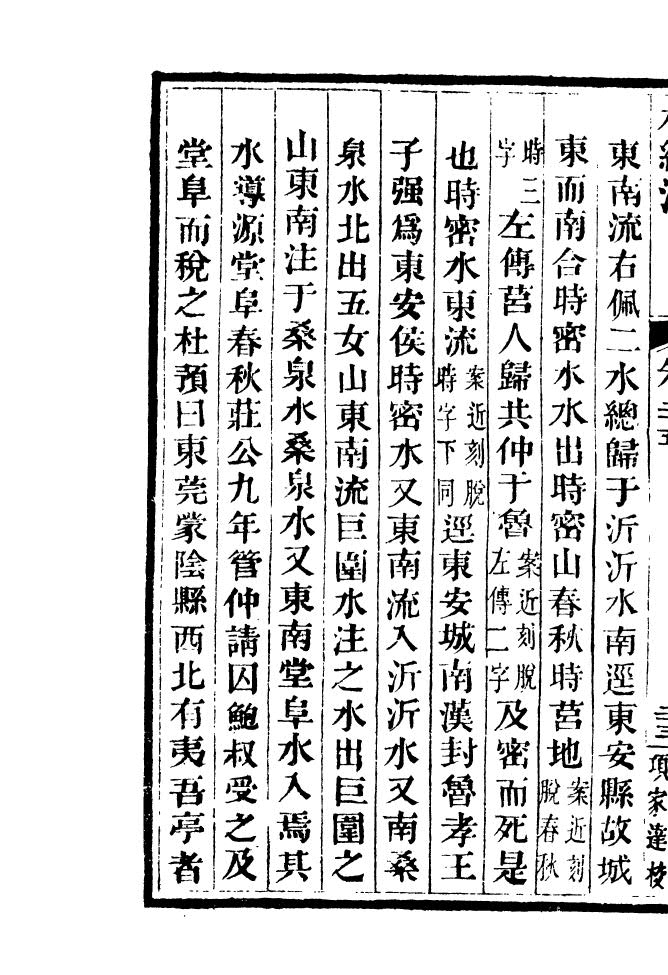 水經注 卷二十五 三 項家達校
東南流右佩二水總歸于沂沂水南逕東安縣故城
東而南合時密水水出時密山春秋時莒地案近刻脫春秋
時三字左傳莒人歸共仲于魯案近刻脫左傳二字及密而死是
也時密水東流案近刻脫時字下同逕東安城南漢封魯孝王
子强爲東安侯時密水又東南流入沂沂水又南桑
泉水北出五女山東南流巨圍水注之水出巨圍之
山東南注于桑泉水桑泉水又東南堂阜水入焉其
水導源堂阜春秋莊公九年管仲請囚鮑叔受之及
堂阜而稅之杜預曰東莞蒙陰縣西北有夷吾亭者